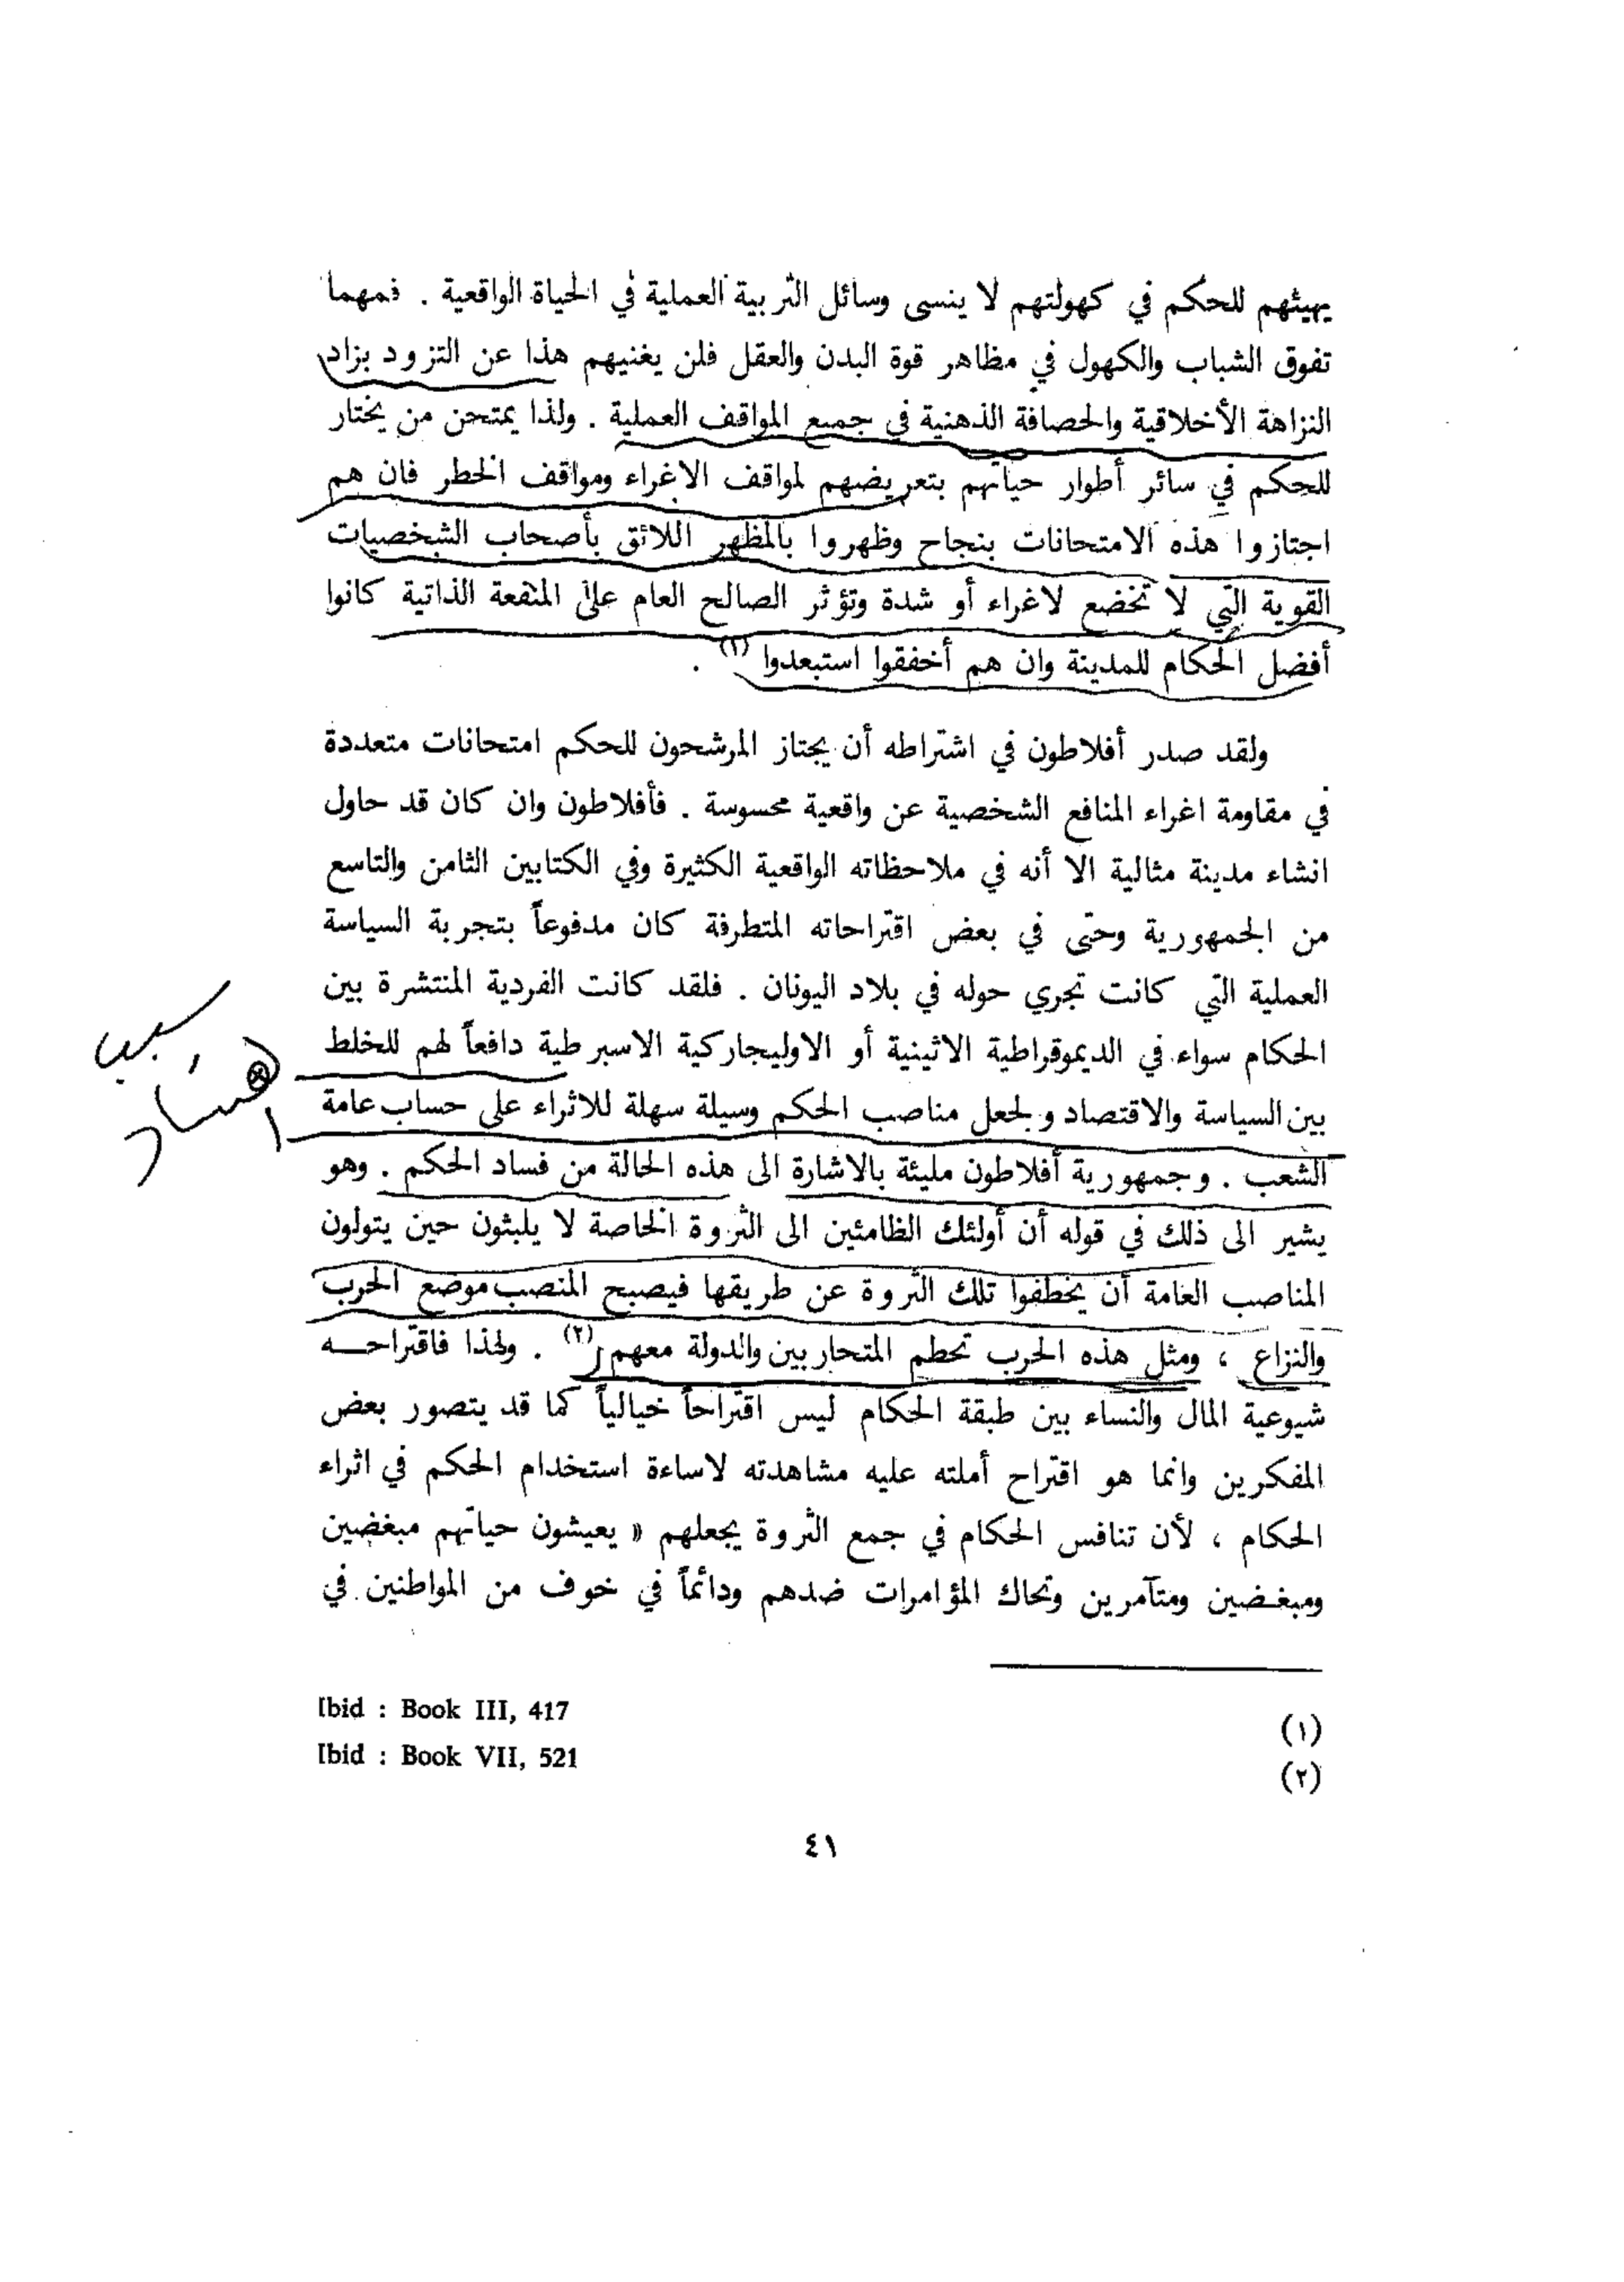 يهيئهم للحكم في كهولتهم لا ينسى وسائل التربية العملية في الحياة الواقعية . فمهما
تفوق الشباب والكهول في مظاهر قوة البدن والعقل فلن يغنيهم هذا عن التزود بزاد
النزاهة الأخلاقية والحصافة الذهنية في جميع المواقف العملية . ولذا يمتحن من يختار
للحكم في سائر أطوار حياتهم بتعريضهم لمواقف الاغراء ومواقف الخطر فان هم
اجتازوا هذه الامتحانات بنجاح وظهروا بالمظهر اللائق بأصحاب الشخصيات
القوية التي لا تخضع لاغراء أو شدة وتؤثر الصالح العام على المنفعة الذاتية كانوا
أفضل الحكام للمدينة وان هم أخفقوا استبعدوا (١) .
ولقد صدر أفلاطون في اشتراطه أن يجتاز المرشحون للحكم امتحانات متعددة
في مقاومة اغراء المنافع الشخصية عن واقعية محسوسة . فأفلاطون وان كان قد حاول
انشاء مدينة مثالية الا أنه في ملاحظاته الواقعية الكثيرة وفي الكتابين الثامن والتاسع
من الجمهورية وحتى في بعض اقتراحاته المتطرفة كان مدفوعاً بتجربة السياسة
العملية التي كانت تجري حوله في بلاد اليونان . فلقد كانت الفردية المنتشرة بين
الحكام سواء في الديموقراطية الاثينية أو الاوليجاركية الاسبرطية دافعاً لهم للخلط
بين السياسة والاقتصاد ولجعل مناصب الحكم وسيلة سهلة للاثراء على حساب عامة
الشعب . وجمهورية أفلاطون مليئة بالاشارة الى هذه الحالة من فساد الحكم . وهو
يشير الى ذلك في قوله أن أولئك الظامئين الى الثروة الخاصة لا يلبثون حين يتولون
المناصب العامة أن يخطفوا تلك الثروة عن طريقها فيصبح المنصب موضع الحرب
والنزاع ، ومثل هذه الحرب تحطم المتحاربين والدولة معهم (٢) . ولهذا فاقتراحـــه
شيوعية المال والنساء بين طبقة الحكام ليس اقتراحاً خيالياً كما قد يتصور بعض
المفكرين وانما هو اقتراح أملته عليه مشاهدته لاساءة استخدام الحكم في اثراء
الحكام ، لأن تنافس الحكام في جمع الثروة يجعلهم « يعيشون حياتهم مبغضين
ومبغـضين ومتآمرين وتحاك المؤامرات ضدهم ودائماً في خوف من المواطنين في
سبب
(١) Ibid : Book III, 417
(٢) Ibid : Book VII, 521
٤١